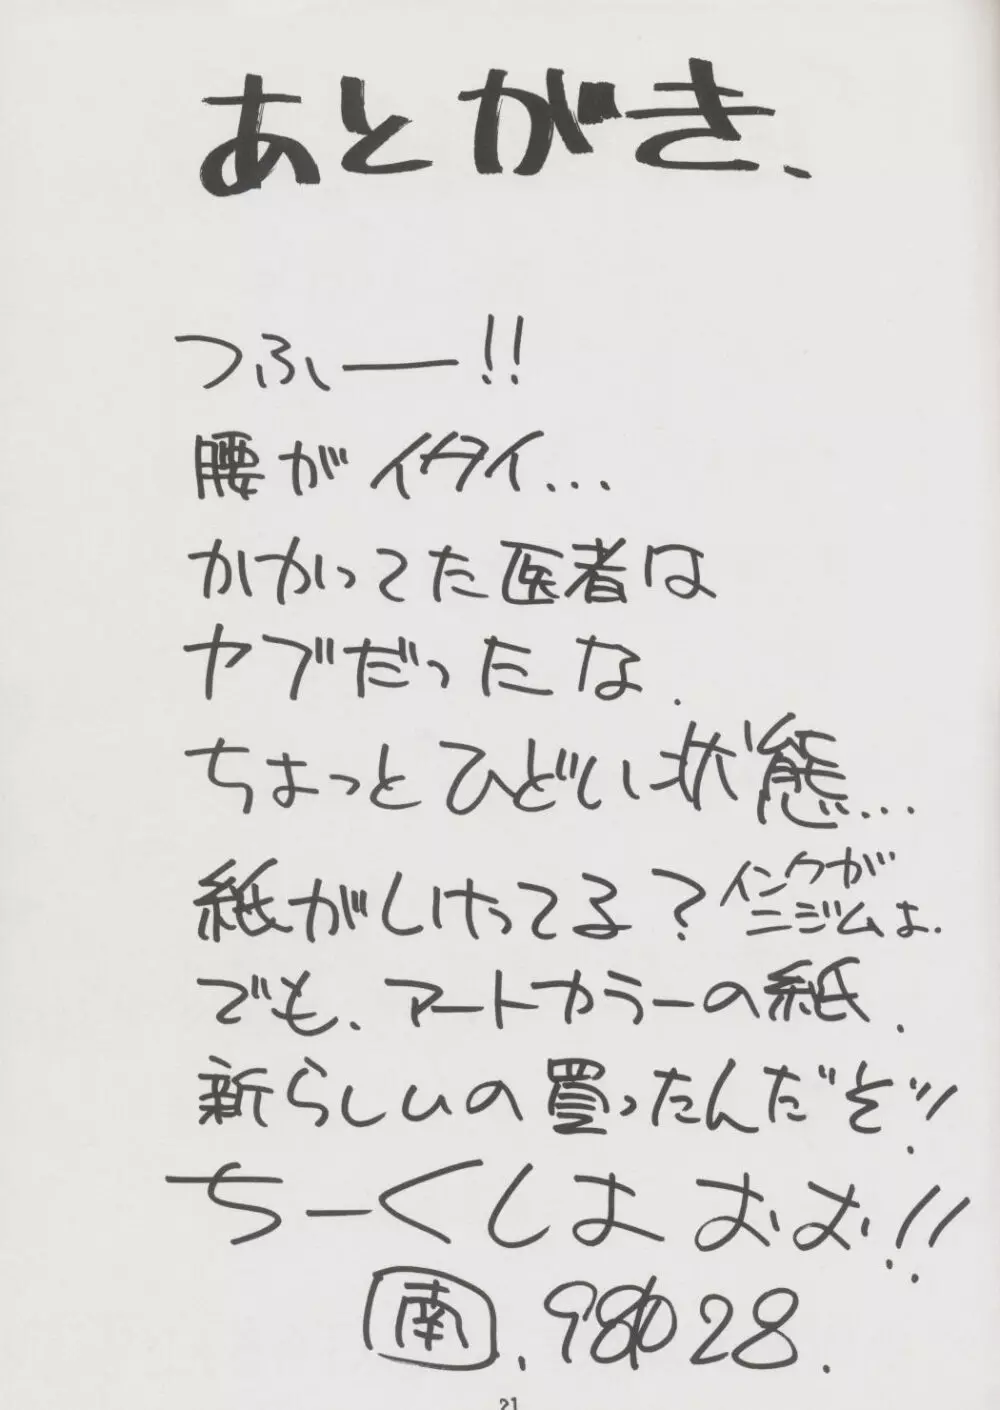 あとがき、
つふー!!
腰がイタイ...
かかってた医者は
ヤブだったな.
ちょっとひどい状態...
紙がしけってる?インクが
ニジムよ.
でも、アートカラーの紙.
新らしいの買ったんだぞ!!
ちーくしょおお!!
南. 28.
21